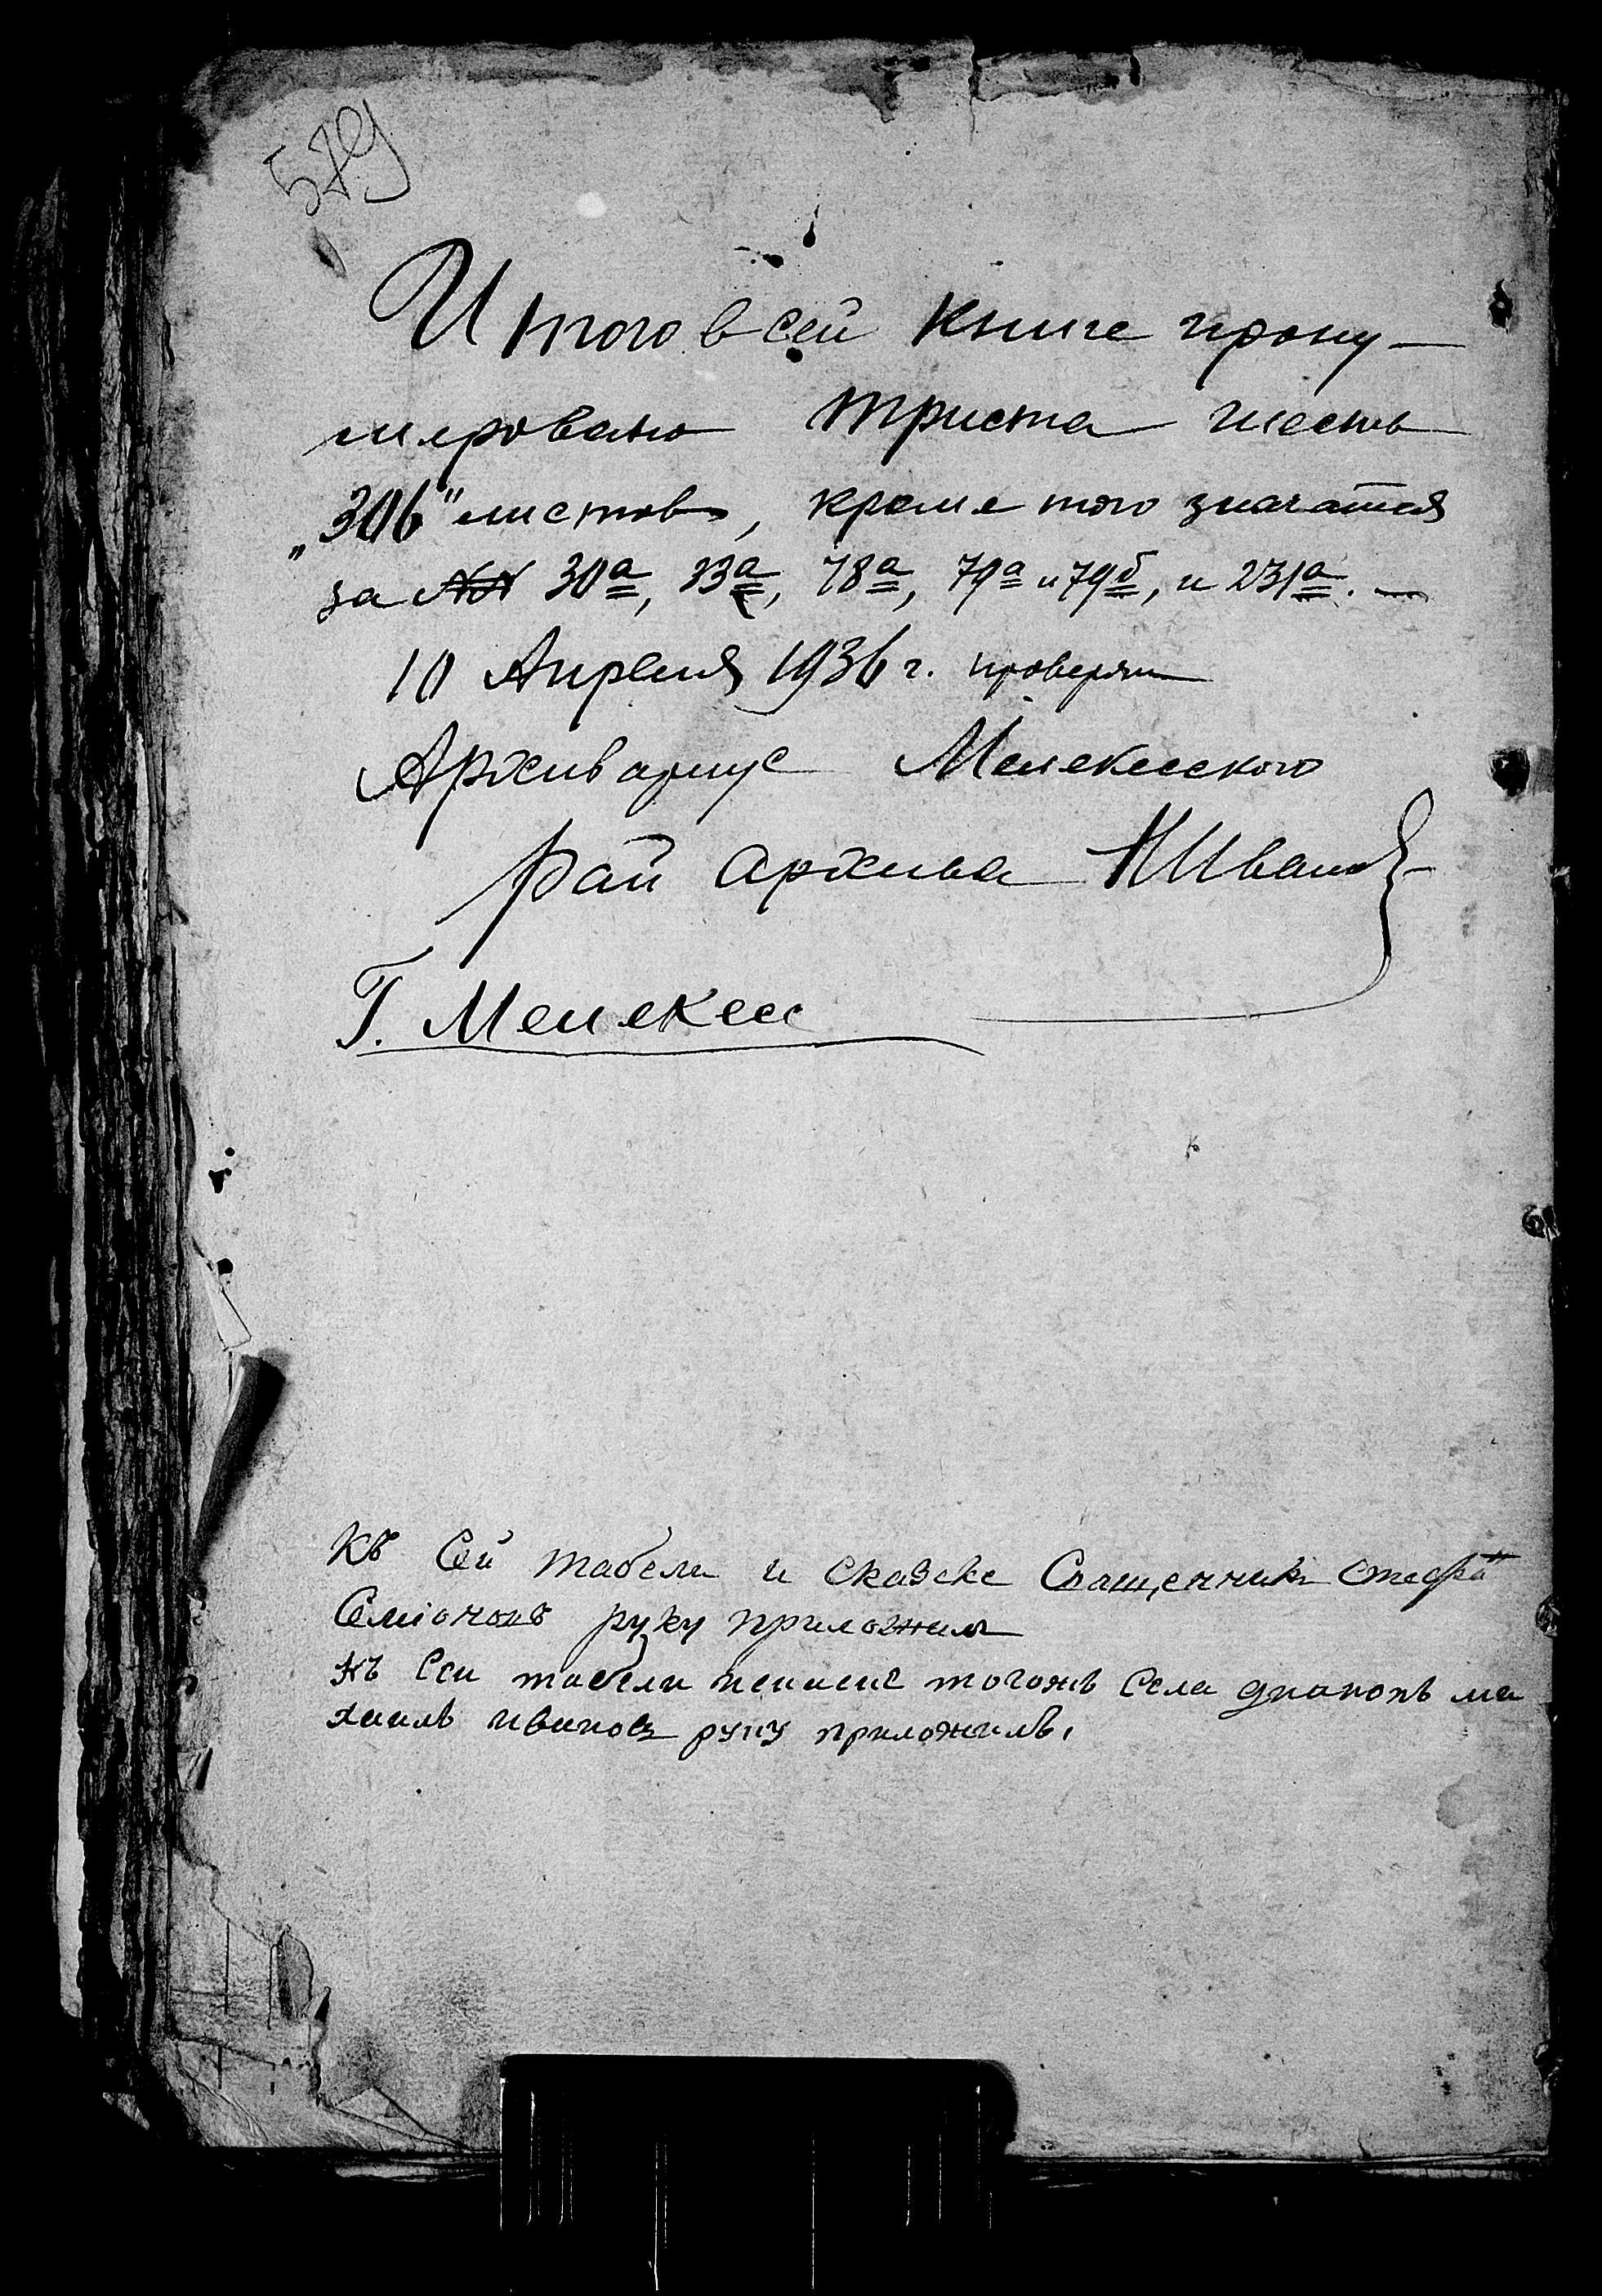 579
Итого в сей книге прону-
мировано триста шесть
„306" листов, кроме того значатся
за №№ 30а, 33а, 78а, 79а и 79б, и 231а. —
10 Апреля 1936 г. проверял
Архивариус Мелекесского
рай архива НИванов
Г. Мелекесс
Къ Сей табели и сказске Священникъ Стефа
Семіоновъ руку приложилъ
къ Сеи табели тогожъ Села диаконъ ми
хаилъ ивановъ руку приложилъ,